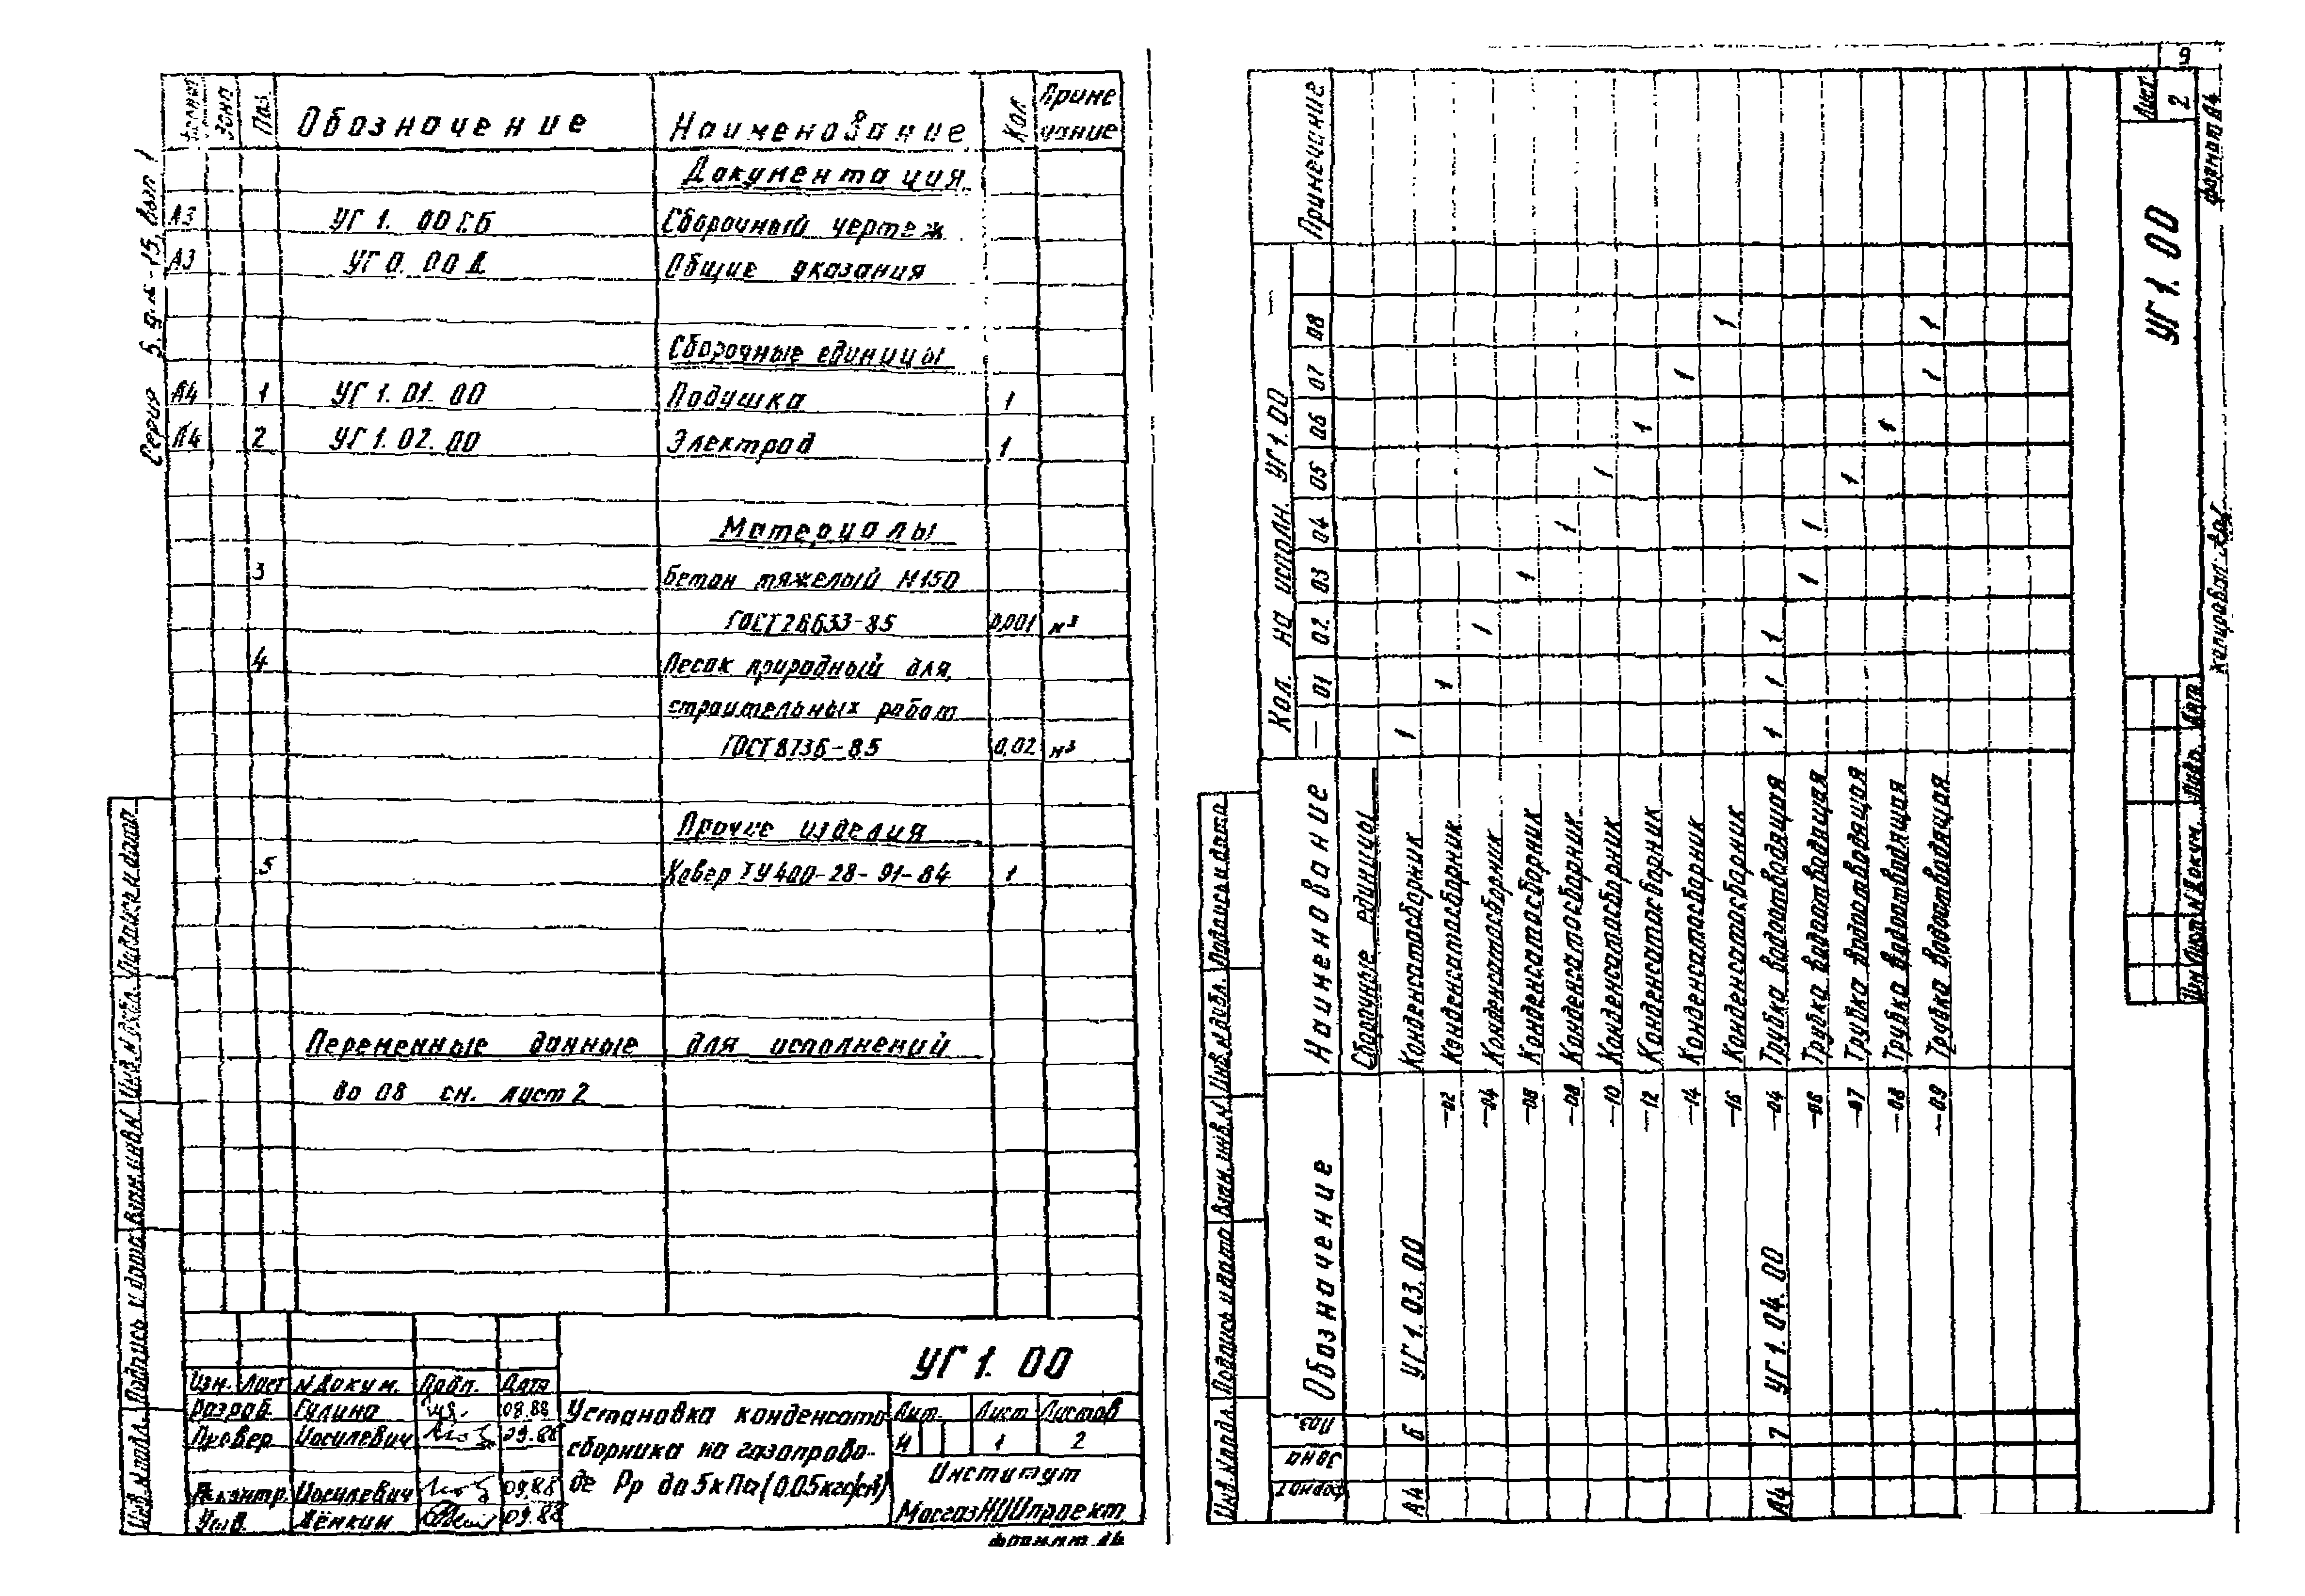 Серия 5.9 к-15, вып 1
Формат Зона Поз. Обозначение Наименование Кол Приме чание
Документация
А3 УГ 1. 00 СБ Сборочный чертеж
А3 УГ 0. 00 Д Общие указания
Сборочные единицы
А4 1 УГ 1. 01. 00 Подушка 1
А4 2 УГ 1. 02. 00 Электрод 1
Материалы
3 Бетон тяжелый М150
ГОСТ 26633-85 0,001 м³
4 Песок природный для
строительных работ
ГОСТ 8736-85 0,02 м³
Прочие изделия
5 Ковер ТУ 400-28-91-84 1
Переменные данные для исполнений
во 08 см. лист 2
Инв. N подл. Подпись и дата Взам. инв. N Инв. N дубл. Подпись и дата
УГ 1. 00
Изм. Лист N Докум. Подп. Дата
Разраб. Гулина 09.88
Провер Иосилевич 09.88
Н.контр. Иосилевич 09.88
Утв. Лёнкин 09.88
Установка конденсато
сборника на газопрово-
де Рр до 5 кПа (0.05 кгс/см²)
Лит. Лист Листов
И 1 2
Институт
МосгазНИИпроект
Формат А4
9
Формат Зона Поз. Обозначение Наименование Кол. на исполн. УГ 1. 00 — Примечание
— 01 02 03 04 05 06 07 08
Сборочные единицы
А4 6 УГ 1. 03. 00 Конденсатосборник 1
—02 Конденсатосборник 1
—04 Конденсатосборник 1
—06 Конденсатосборник 1
—08 Конденсатосборник 1
—10 Конденсатосборник 1
—12 Конденсатосборник 1
—14 Конденсатосборник 1
—16 Конденсатосборник 1
А4 7 УГ 1. 04. 00 —04 Трубка водоотводящая 1 1 1
—06 Трубка водоотводящая 1 1
—07 Трубка водоотводящая 1
—08 Трубка водоотводящая 1
—09 Трубка водоотводящая 1 1
Инв. N подл. Подпись и дата Взам. инв. N Инв. N дубл. Подпись и дата
Изм Лист N Докум. Подп. Дата
УГ 1. 00
Лист
2
Копировал
Формат А4